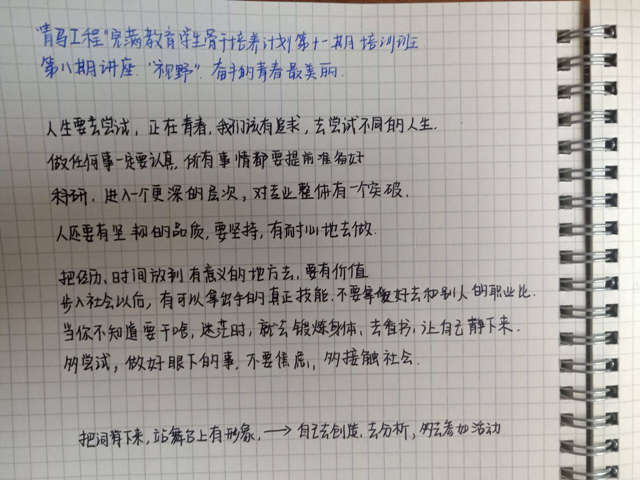 "青马工程"完满教育学生骨干培养计划第十一期培训班
第八期讲座."视野".奋斗的青春最美丽.
人生要去尝试,正在青春,我们该有追求,去尝试不同的人生.
做任何事一定要认真.所有事情都要提前准备好
科研,进入一个更深的层次,对专业整体有一个突破.
人还要有坚韧的品质,要坚持,有耐心地去做.
把经历、时间放到有意义的地方去,要有价值
步入社会以后,有可以拿出手的真正技能.不要拿爱好去和别人的职业比.
当你不知道要干啥,迷茫时,就去锻炼身体,去看书,让自己静下来.
多尝试,做好眼下的事,不要焦虑,多接触社会.
把词背下来,站舞台上有形象.→自己去创造,去分析,多去参加活动